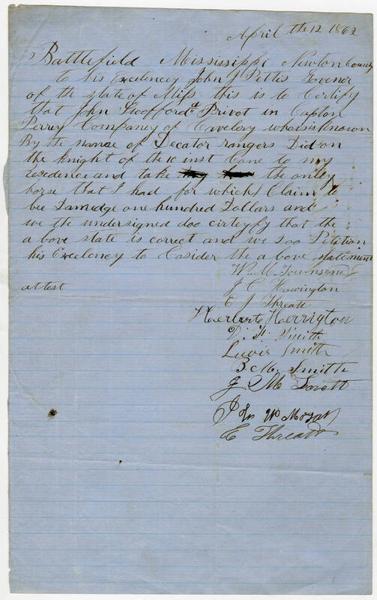 April the 12 1862
Battlefield Mississippi Newton County
to his Excelency John J Pettis Govener
of the state of Miss this is to Certify
that John Swofford Privot in Capton
Perry Company of Cavelery who is known
By the name of Decator rangers Did on
the Knight of the inst Came to my
residence and take the onley
horse that I had for which I Claim to
bee Damedge one hundred Dollars and
we the undersigned doo certeyfy that the
a bove state is correct and we doo Petition
his Excelency to Casider the a bove statement
W. M. Townsend
attest
J C Harrington
E J Threatt
Harrington
Smith
Lewis Smith
B M Smith
J M
Jno W
E Threatt